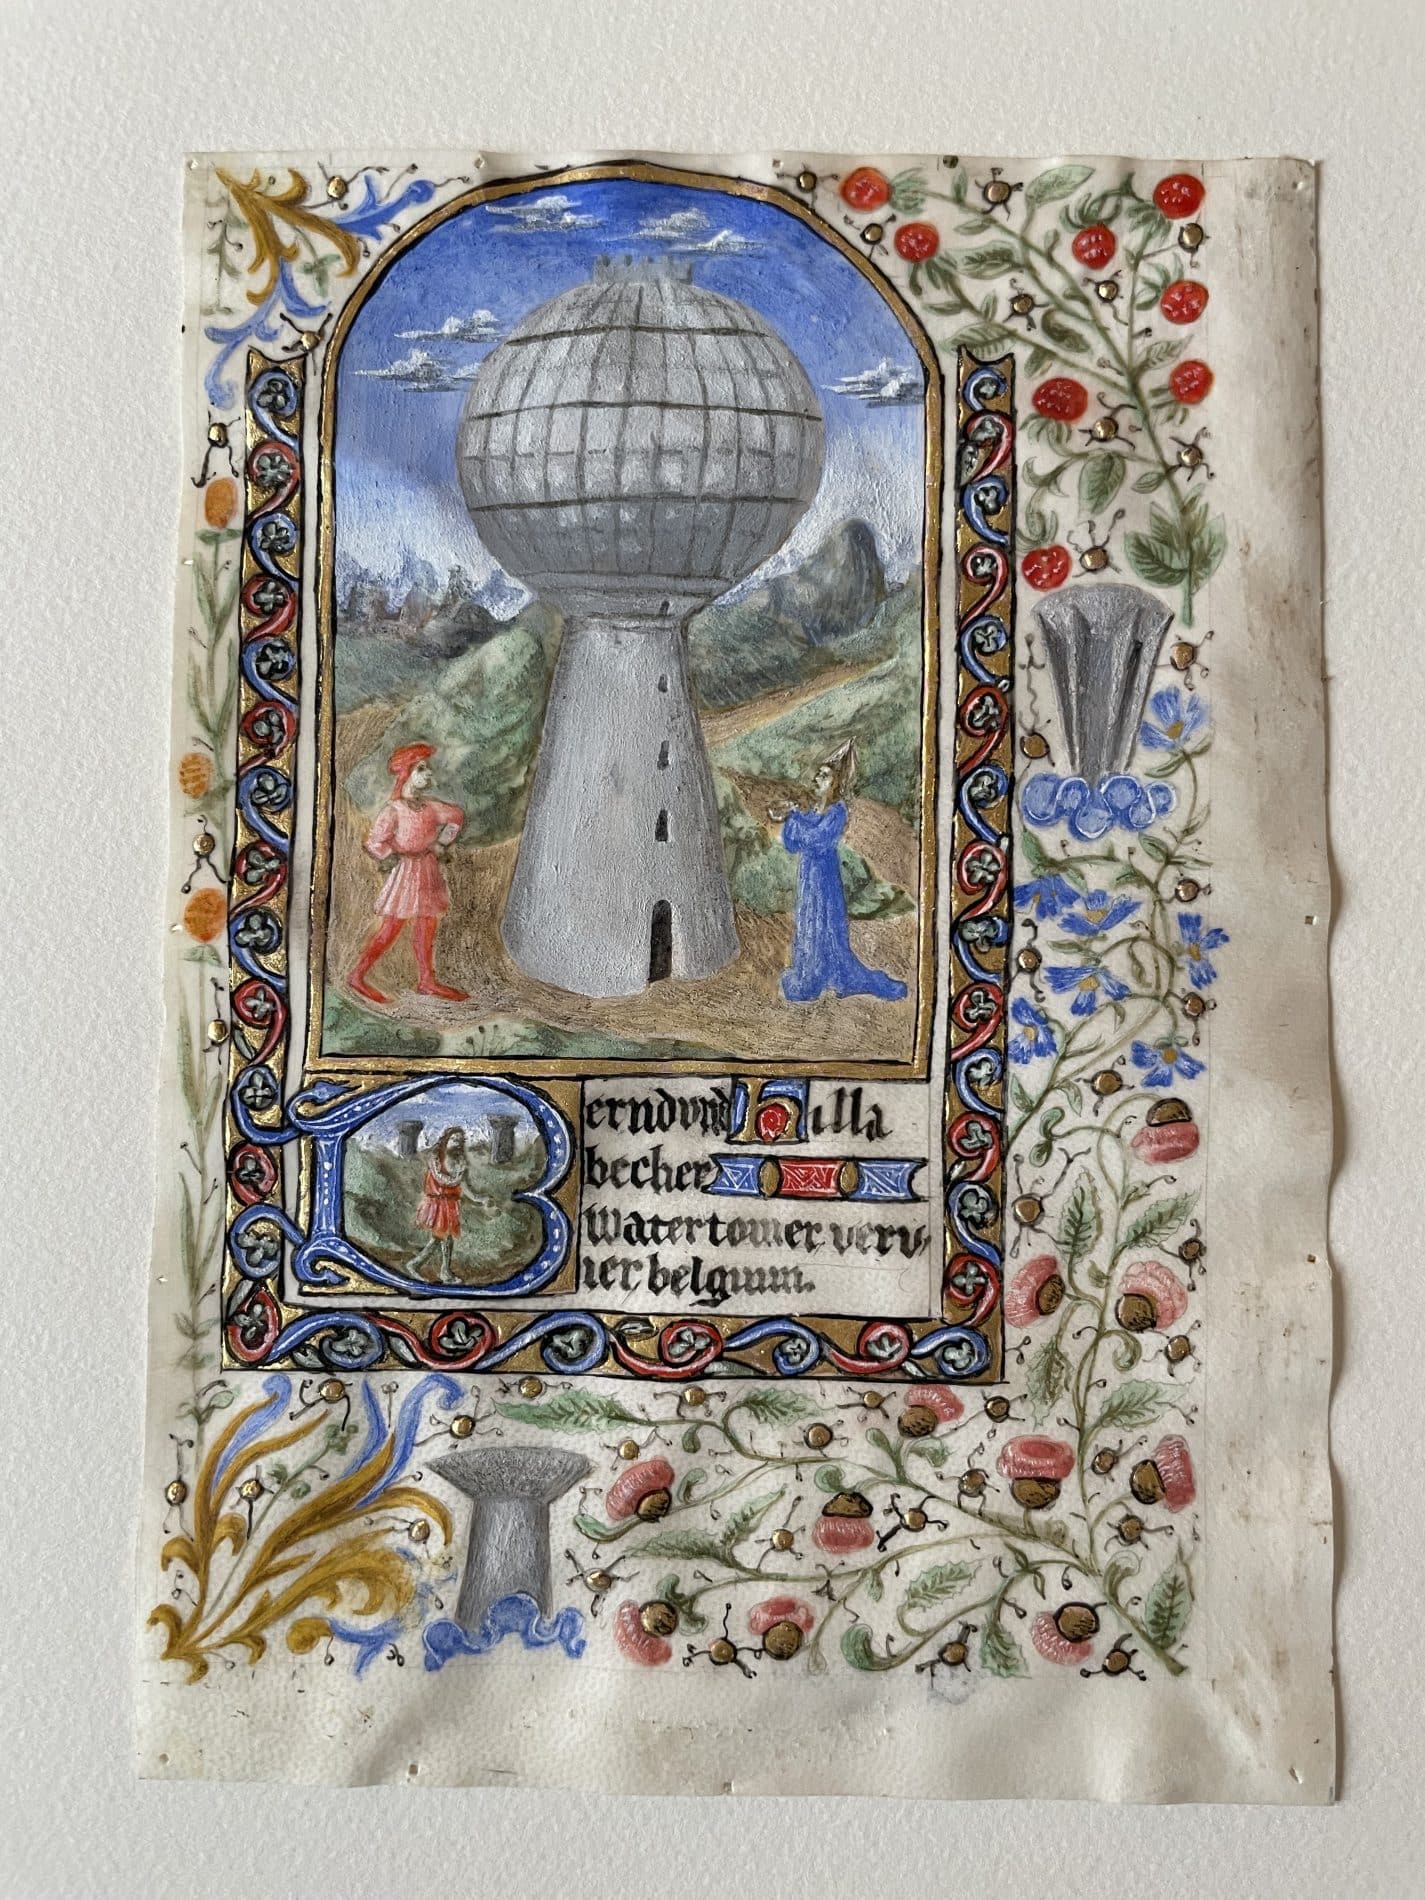 Bernd vnd hilla
becher
watertower verv,
ier belgium.